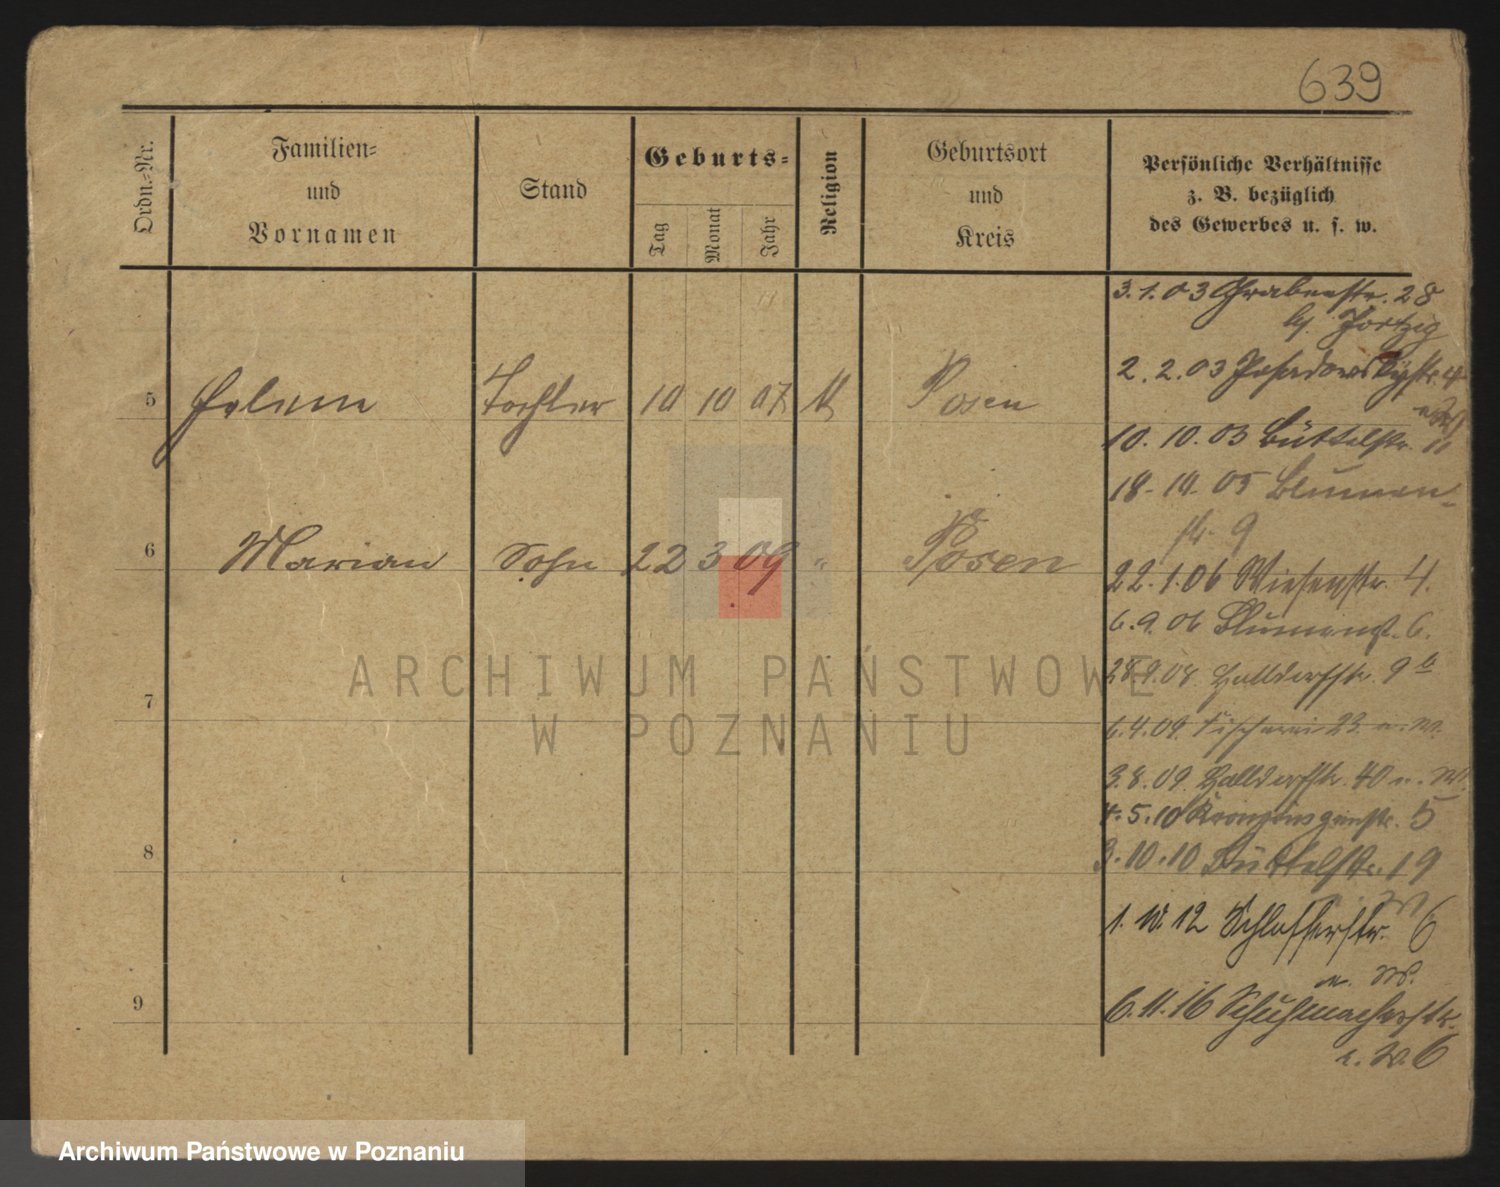 639
Ordn.-Nr.
Familien-
und
Vornamen
Stand
Geburts-
Tag
Monat
Jahr
Religion
Geburtsort
und
Kreis
Persönliche Verhältnisse
z. B. bezüglich
des Gewerbes u. s. w.
3.1.03 Grabenstr. 28
2.2.03 Posadowskystr. 4
5 Tochter 10 10 07 Posen
10.10.03 Büttelstr. 11
18.10.05 Blumen-
str. 9
6 Marian Sohn 22 3 09 " Posen
22.1.06 Wiesenstr. 4.
6.9.06 Blumenst. 6.
28.9.08. Halldorfstr. 9
7
6.4.09. Fischerei 23. n. W.
3.8.09. Halldorfstr. 40 n. W.
4.5.10 Kronprinzenstr. 5
8
3.10.10 Büttelstr. 19
1.10.12 Schlosserstr. 6
n. W.
9
6.11.16 Schuhmacherstr.
W. 6
ARCHIWUM PAŃSTWOWE
W POZNANIU
Archiwum Państwowe w Poznaniu